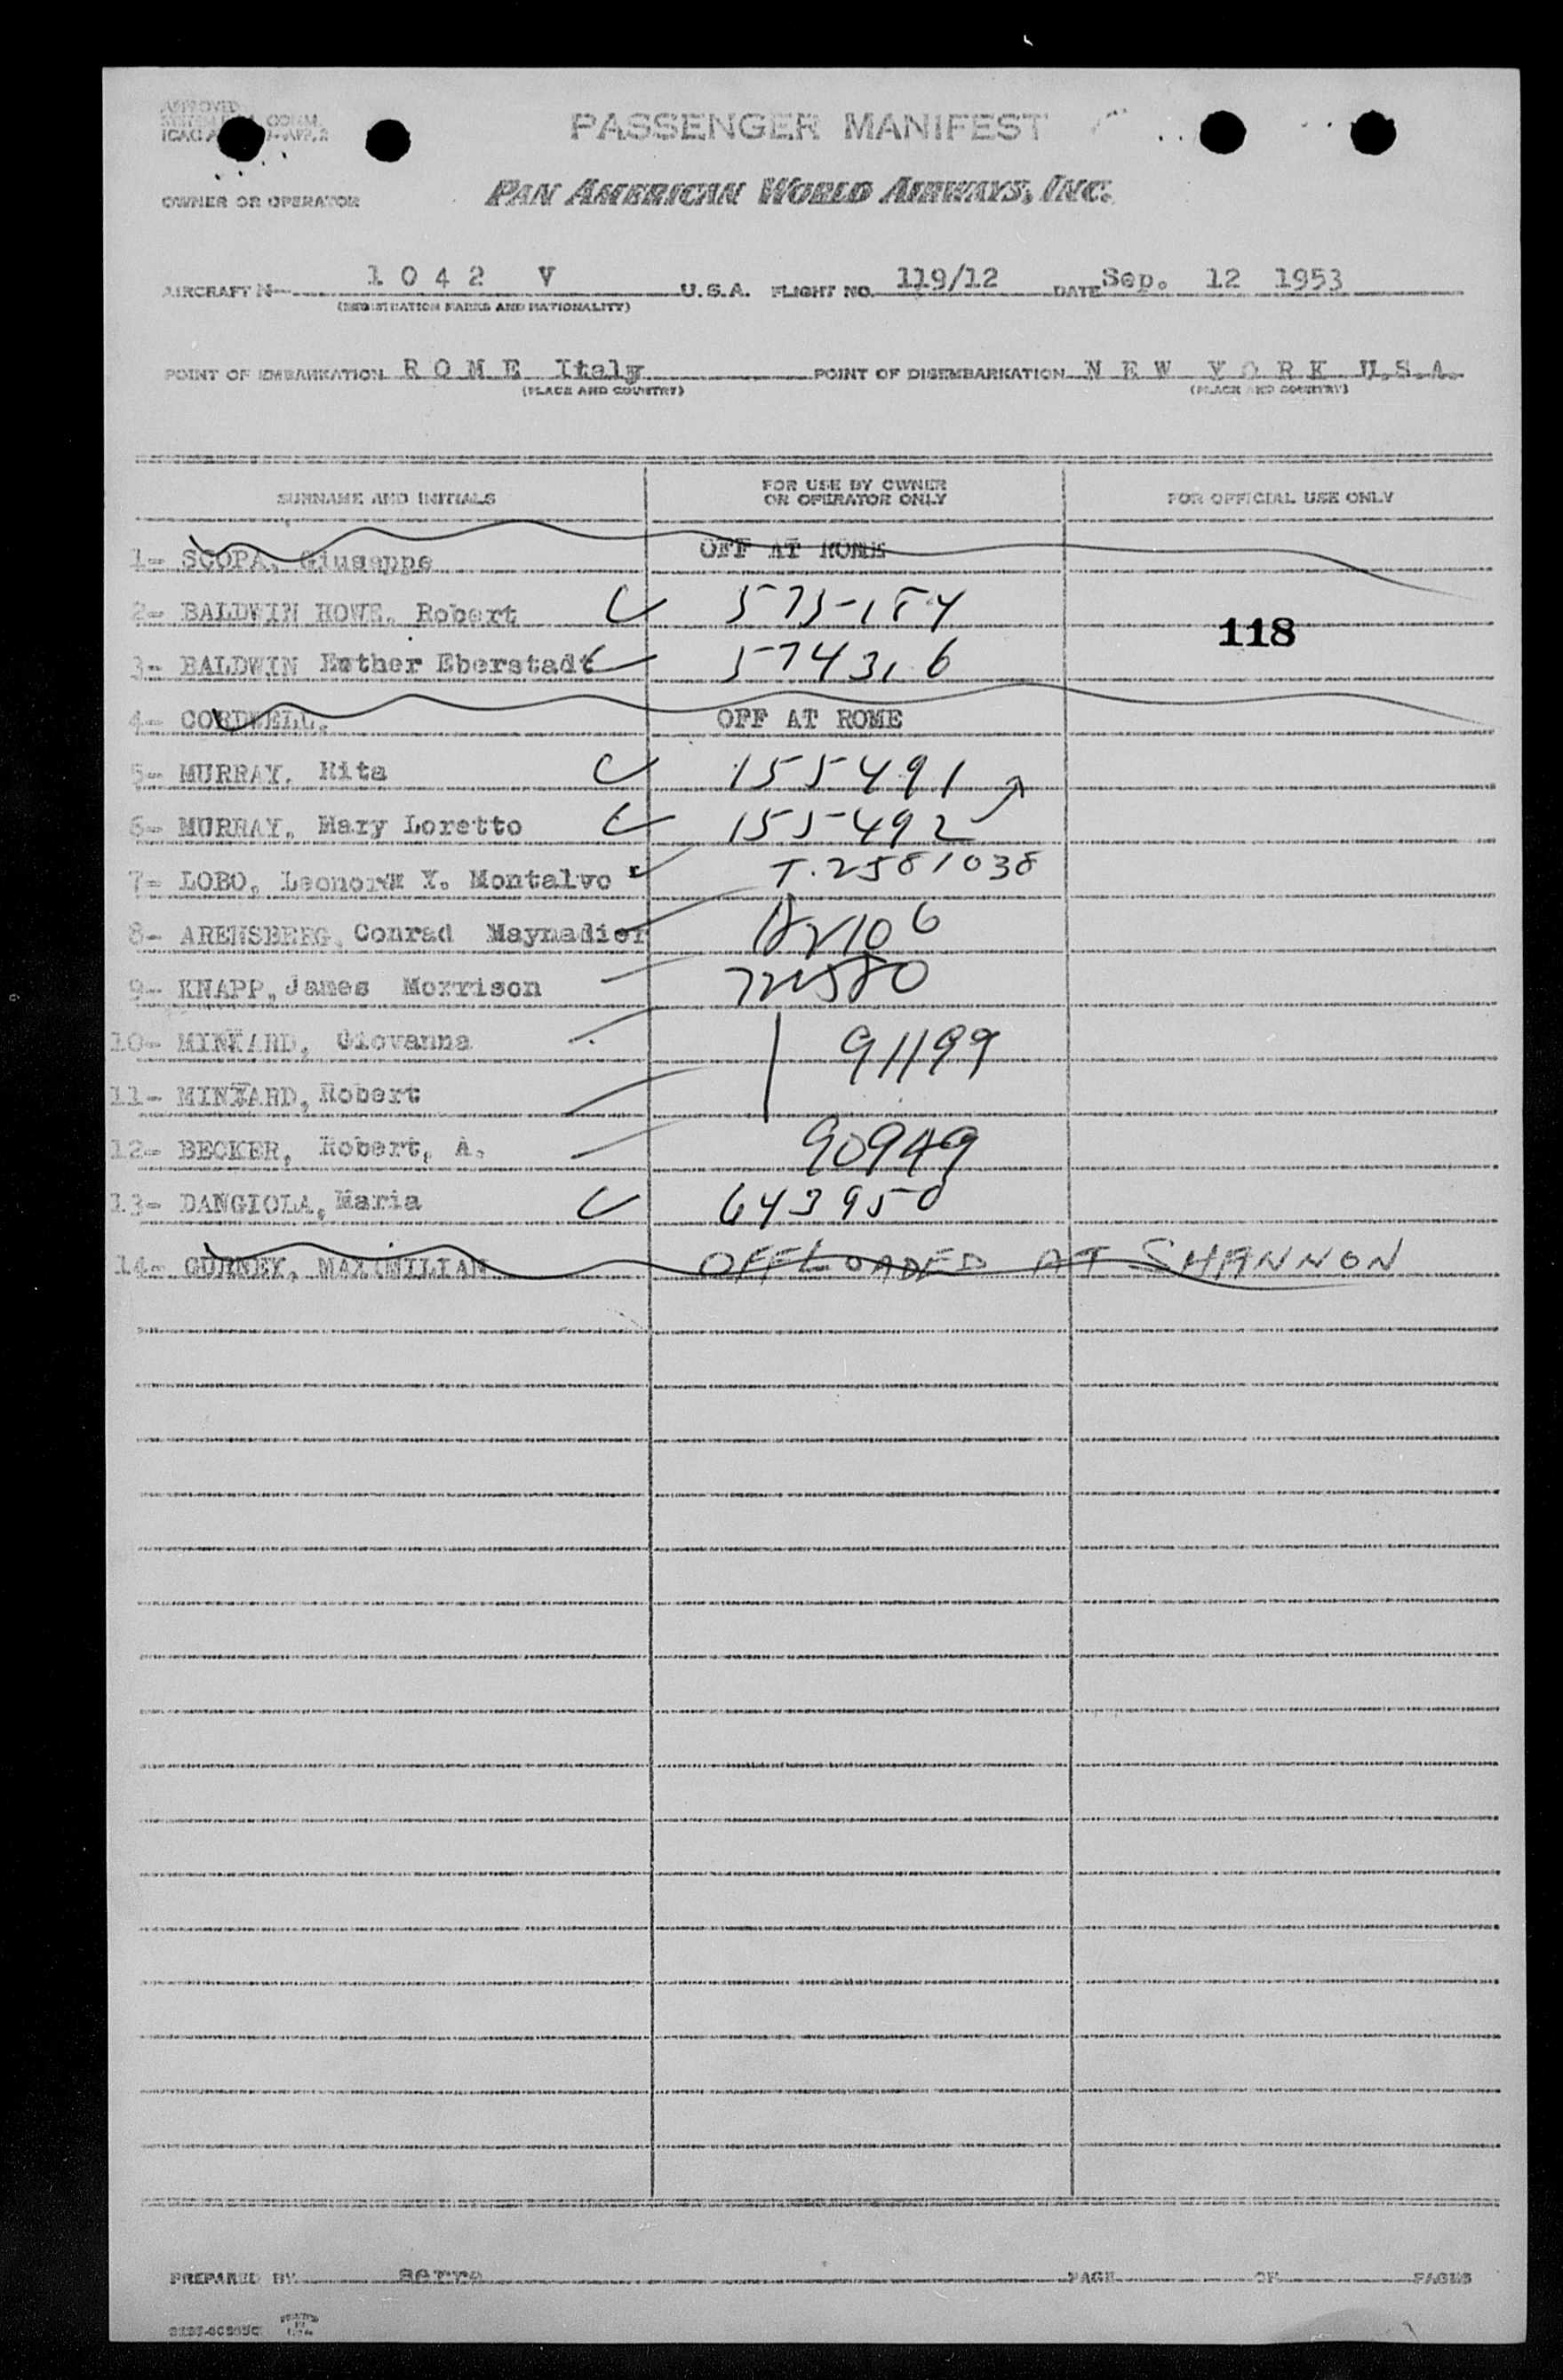 APPROVED
PASSENGER MANIFEST
OWNER OR OPERATOR PAN AMERICAN WORLD AIRWAYS, INC.
AIRCRAFT N 1042 V U.S.A. FLIGHT NO. 119/12 DATE Sep. 12 1953
(REGISTRATION MARKS AND NATIONALITY)
POINT OF EMBARKATION ROME Italy POINT OF DISEMBARKATION NEW YORK U.S.A.
(PLACE AND COUNTRY) (PLACE AND COUNTRY)
SURNAME AND INITIALS FOR USE BY OWNER OR OPERATOR ONLY FOR OFFICIAL USE ONLY
1- SCOPA, Giuseppe OFF AT ROME
2- BALDWIN HOWE, Robert 575184
118
3- BALDWIN Esther Eberstadt 574316
4- CORDWELL, OFF AT ROME
5- MURRAY, Rita 155491
6- MURRAY, Mary Loretto 155492
7- LOBO, Leonor Y. Montalvo T.2581038
8- ARENSBERG, Conrad Maynadier
9- KNAPP, James Morrison
10- MINKARD, Giovanna 91199
11- MINKARD, Robert
12- BECKER, Robert, A. 90949
13- DANGIOLA, Maria 643950
14- GURNEY, MAXIMILIAN OFFLOADED AT SHANNON
PREPARED BY serra PAGE OF PAGES